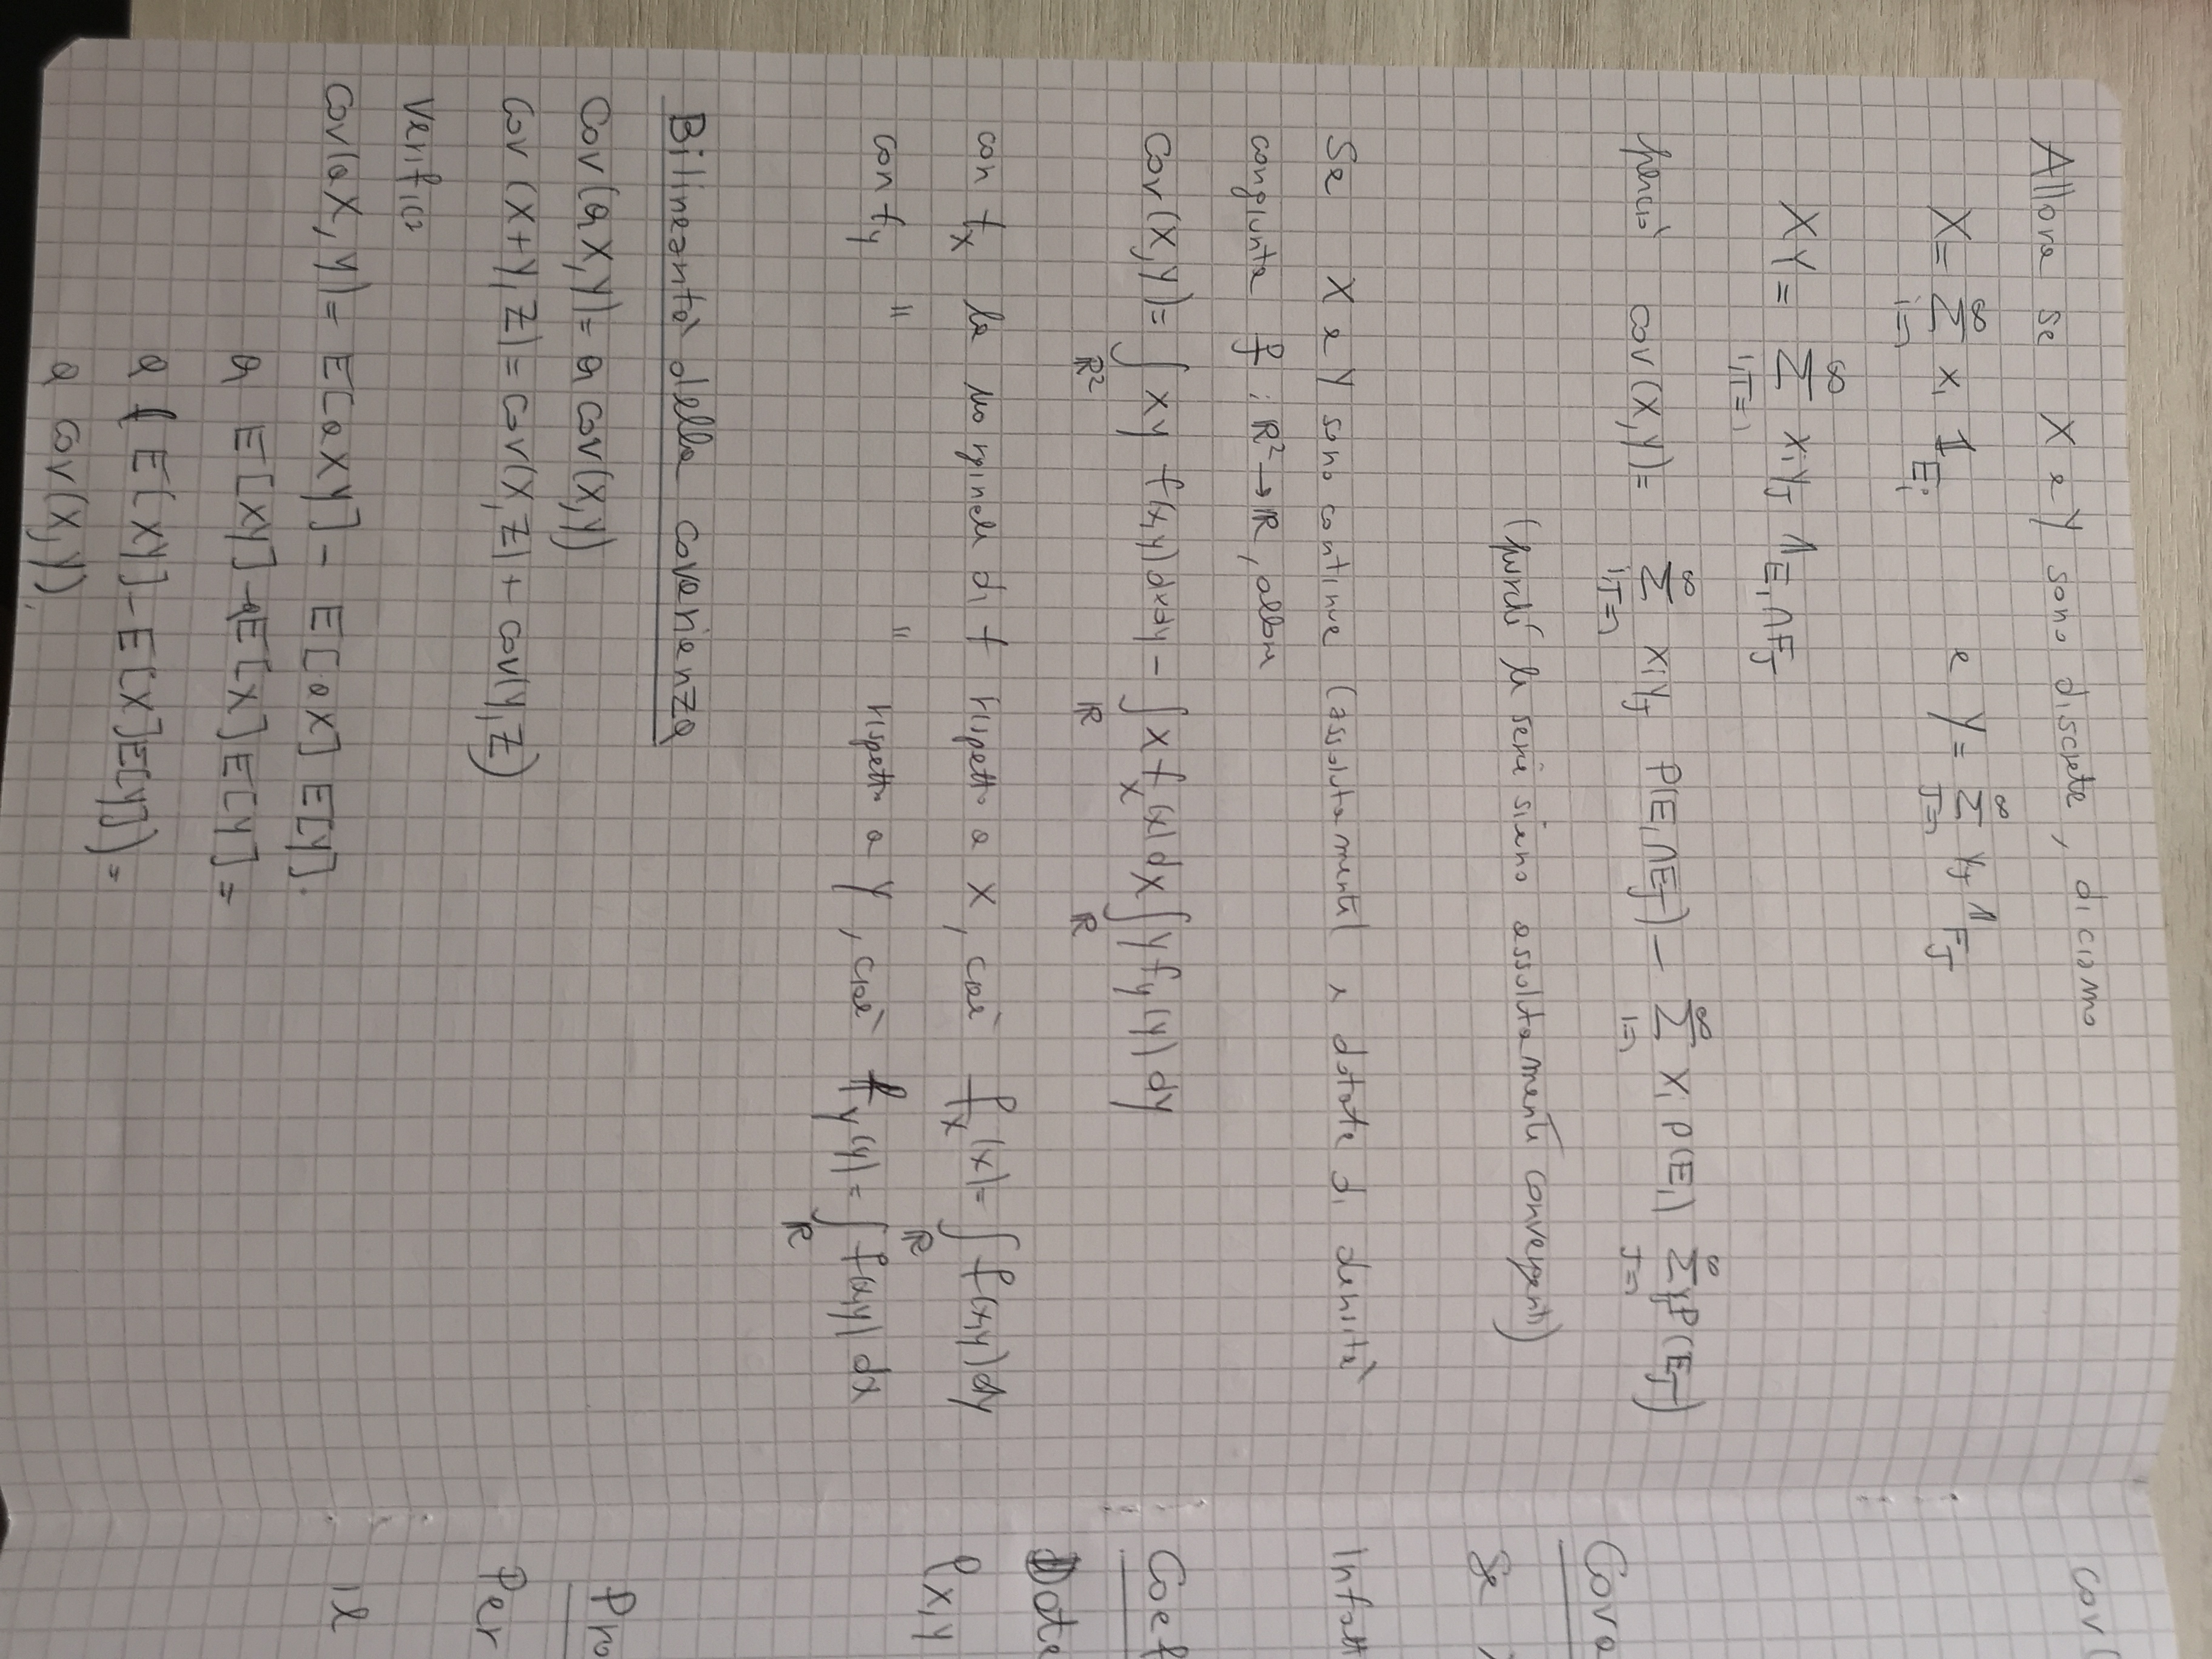 Allora se X e Y sono discrete, diciamo
X = ∑_{i=1}^{∞} x_i 𝟙_{E_i} e Y = ∑_{J=1}^{∞} y_J 𝟙_{F_J}
XY = ∑_{i,J=1}^{∞} x_i y_J 𝟙_{E_i ∩ F_J}
perciò cov(X,Y) = ∑_{i,J=1}^{∞} x_i y_J P(E_i ∩ E_J) − ∑_{i=1}^{∞} x_i P(E_i) ∑_{J=1}^{∞} y_J P(E_J)
(purché le serie siano assolutamente convergenti)
Se X e Y sono continue (assolutamente) e dotate di densità
congiunta f : ℝ² → ℝ, allora
cov(X,Y) = ∫_{ℝ²} xy f(x,y) dxdy − ∫_ℝ x f_X(x) dx ∫_ℝ y f_Y(y) dy
con f_X la marginale di f rispetto a X, cioè f_X(x) = ∫_ℝ f(x,y) dy
con f_Y " " rispetto a Y, cioè f_Y(y) = ∫_ℝ f(x,y) dx
Bilinearità della covarianza
Cov(aX,Y) = a cov(X,Y)
cov (X+Y, Z) = cov(X,Z) + cov(Y,Z)
Verifica
cov(aX, Y) = E[aXY] − E[aX] E[Y].
a E[XY] − aE[X] E[Y] =
a (E[XY] − E[X]E[Y]) =
a cov(X,Y).
cov(
Cova
Se
Infatt
Coef
Date
ρ_{X,Y}
Pro
Per
il